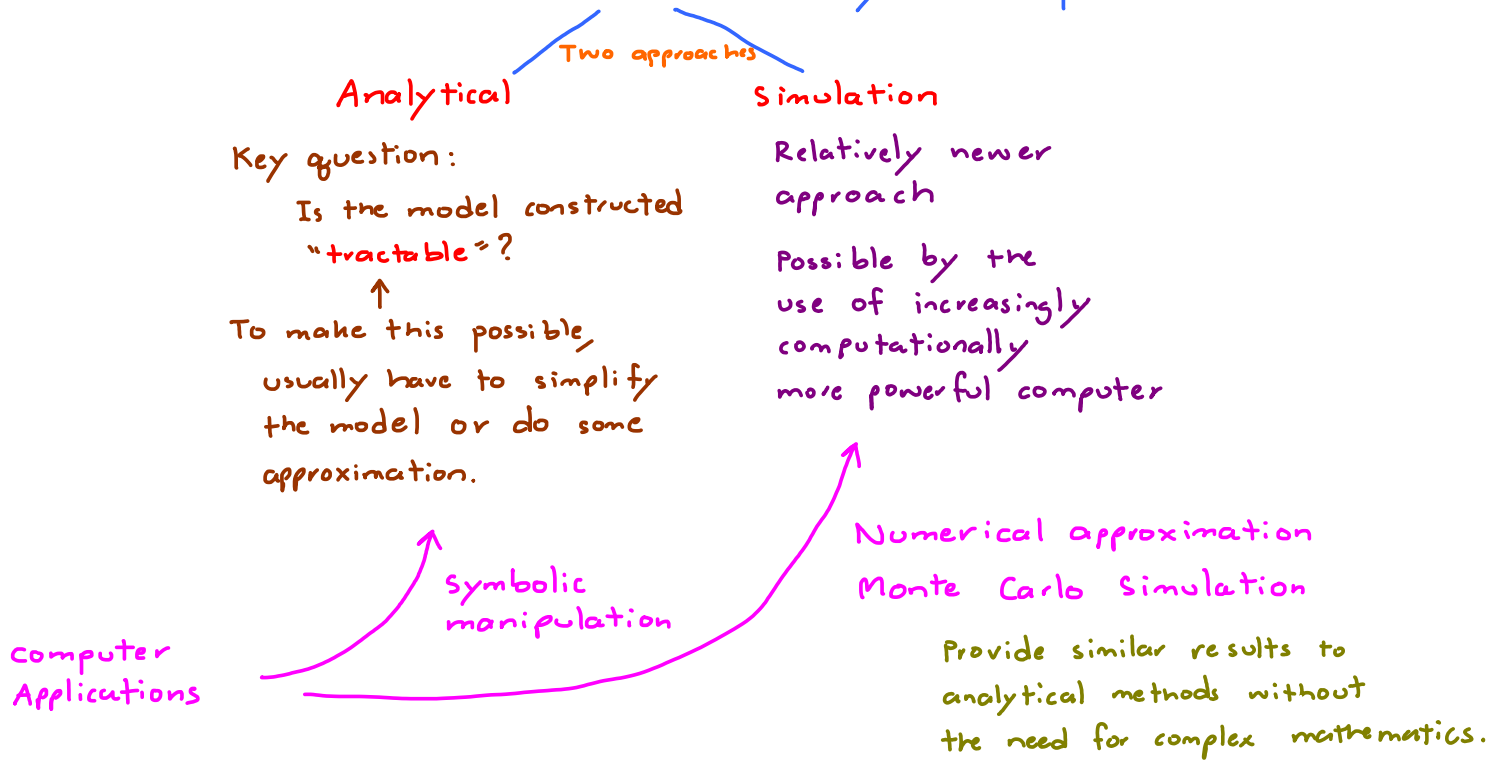 Two approaches
Analytical
Key question:
Is the model constructed
"tractable"?
To make this possible,
usually have to simplify
the model or do some
approximation.
Simulation
Relatively newer
approach
Possible by the
use of increasingly
computationally
more powerful computer
Computer
Applications
Symbolic
manipulation
Numerical approximation
Monte Carlo Simulation
Provide similar results to
analytical methods without
the need for complex mathematics.